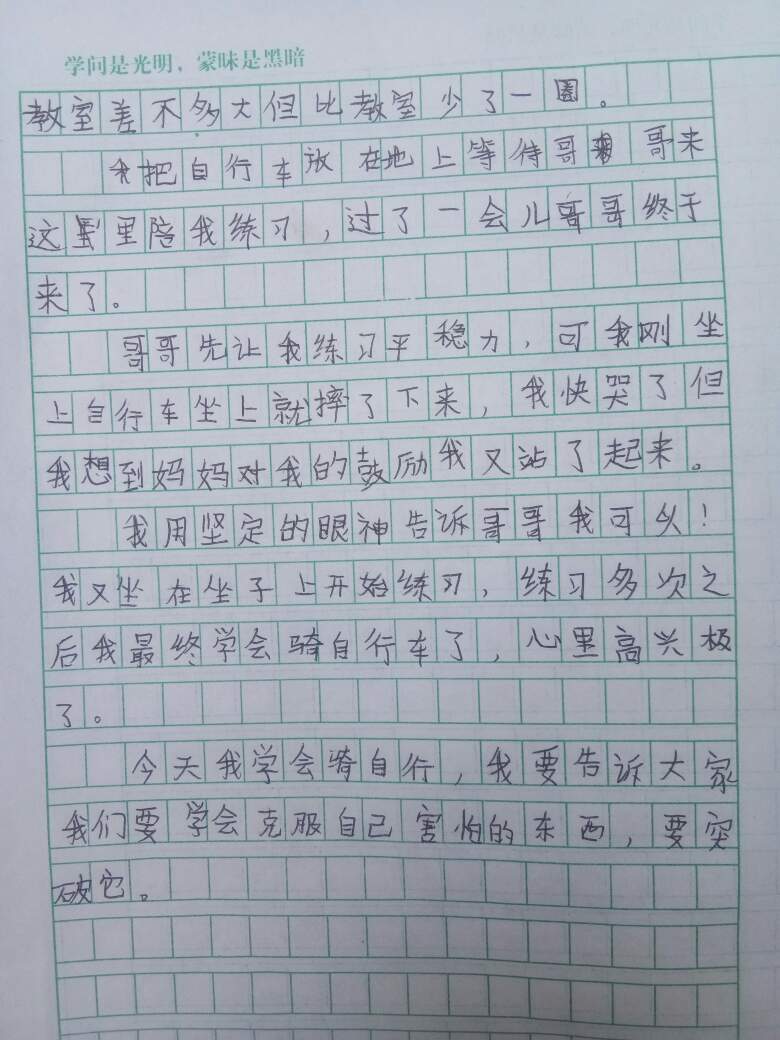 学问是光明，蒙昧是黑暗
教室差不多大但比教室少了一圈。
我把自行车放在地上等待哥哥来
这里陪我练习，过了一会儿哥哥终于
来了。
哥哥先让我练习平稳力，可我刚坐
上自行车坐上就摔了下来，我快哭了但
我想到妈妈对我的鼓励我又站了起来。
我用坚定的眼神告诉哥哥我可以！
我又坐在坐子上开始练习，练习多次之
后我最终学会骑自行车了，心里高兴极
了。
今天我学会骑自行，我要告诉大家
我们要学会克服自己害怕的东西，要突
破它。